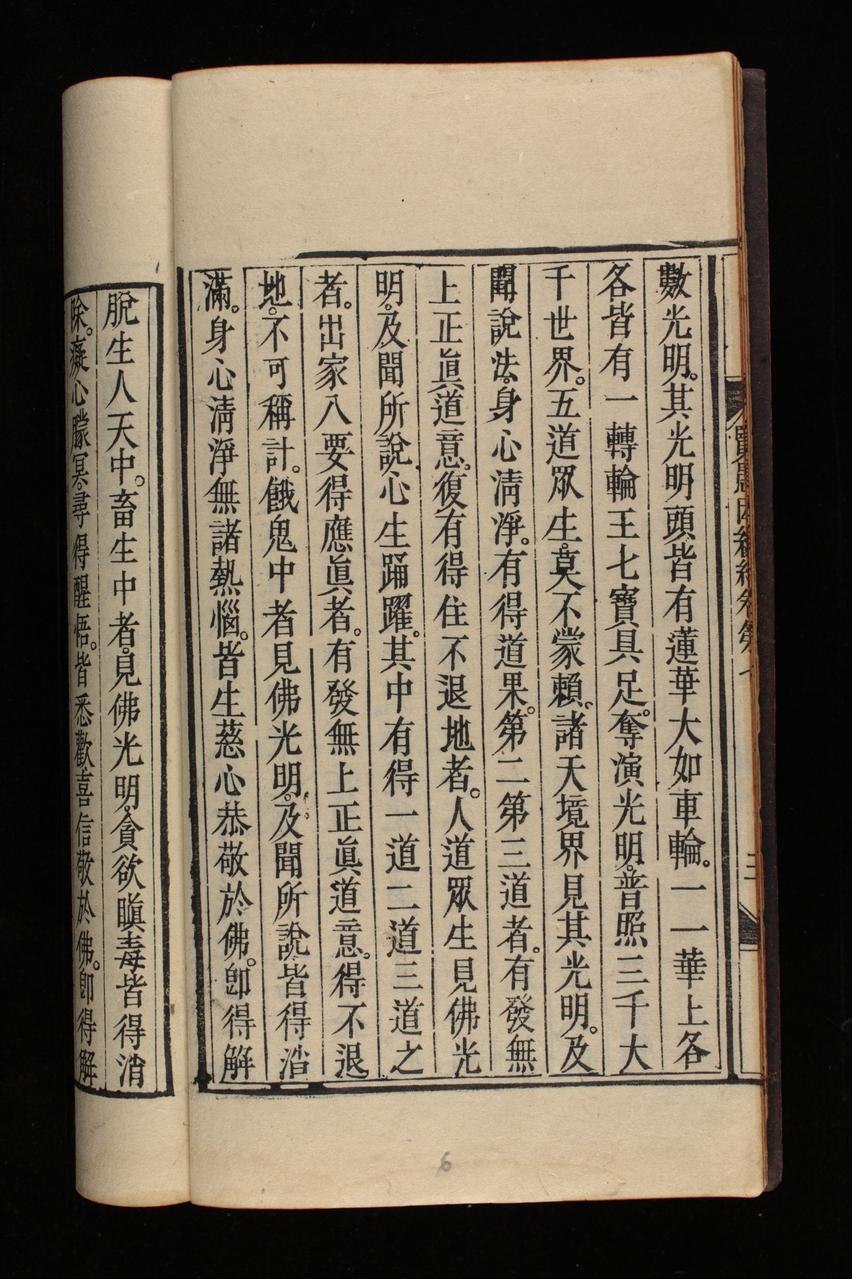 數光明。其光明頭皆有蓮華大如車輪。一一華上各
各皆有一轉輪王七寶具足。奪演光明。普照三千大
千世界。五道眾生。莫不蒙賴。諸天境界見其光明。及
聞說法。身心清淨。有得道果。第二第三道者。有發無
上正眞道意。復有得住不退地者。人道眾生見佛光
明。及聞所說。心生踊躍。其中有得一道二道三道之
者。出家入要得應眞者。有發無上正眞道意。得不退
地。不可稱計。餓鬼中者見佛光明。及聞所說皆得浩
滿。身心清淨無諸熱惱。皆生慈心恭敬於佛。卽得解
脫生人天中。畜生中者。見佛光明。貪欲瞋毒皆得消
除。癡心朦冥。尋得醒悟。皆悉歡喜信敬於佛。卽得解
賢愚因緣經卷第七
三
6